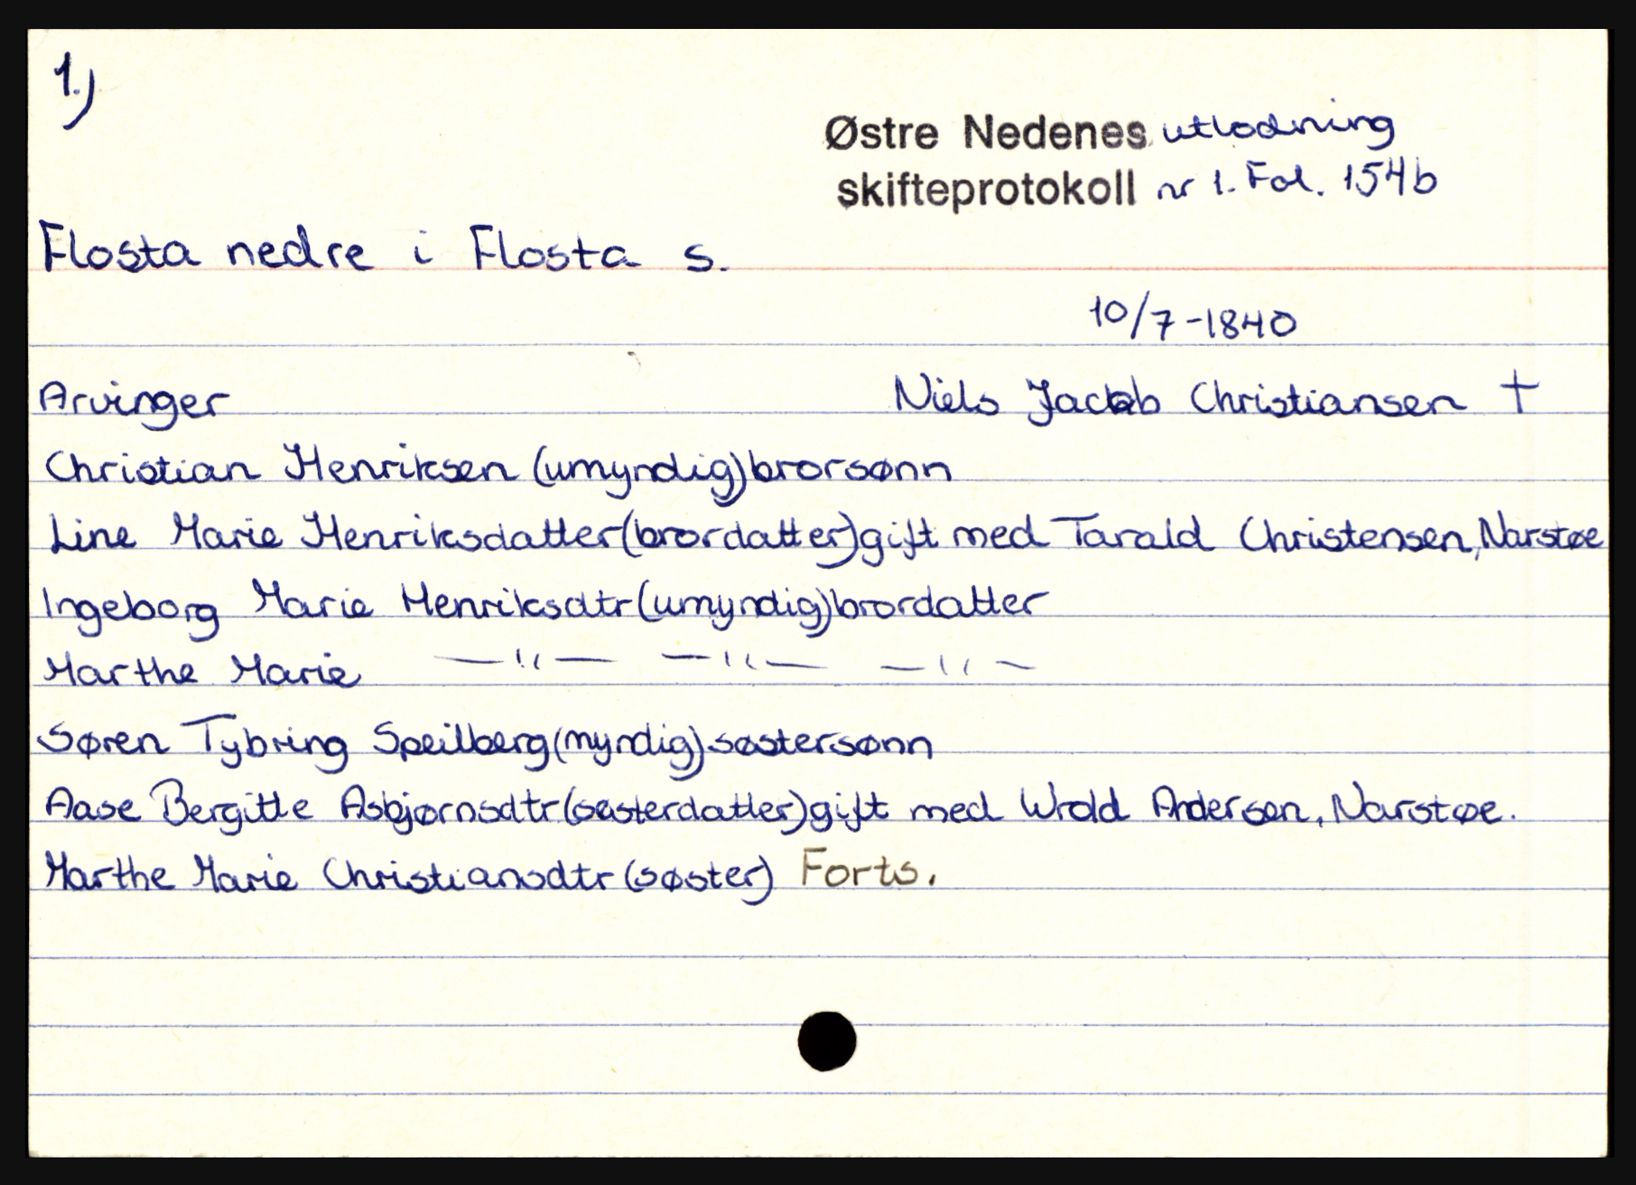 1.)
Østre Nedenes utlodning
skifteprotokoll nr 1. Fol. 154b
Flosta nedre i Flosta s.
10/7-1840
Arvinger Niels Jacob Christiansen †
Christian Henriksen (umyndig) brorsønn
Line Marie Henriksdatter (brordatter) gift med Tarald Christensen, Narstøe
Ingeborg Marie Henriksdtr (umyndig) brordatter
Marthe Marie —"— —"— —"—
Søren Tybring Speilberg (myndig) søstersønn
Aase Bergitte Asbjørnsdtr (søsterdatter) gift med Wrold Andersen, Narstøe.
Marthe Marie Christiansdtr (søster) Forts.